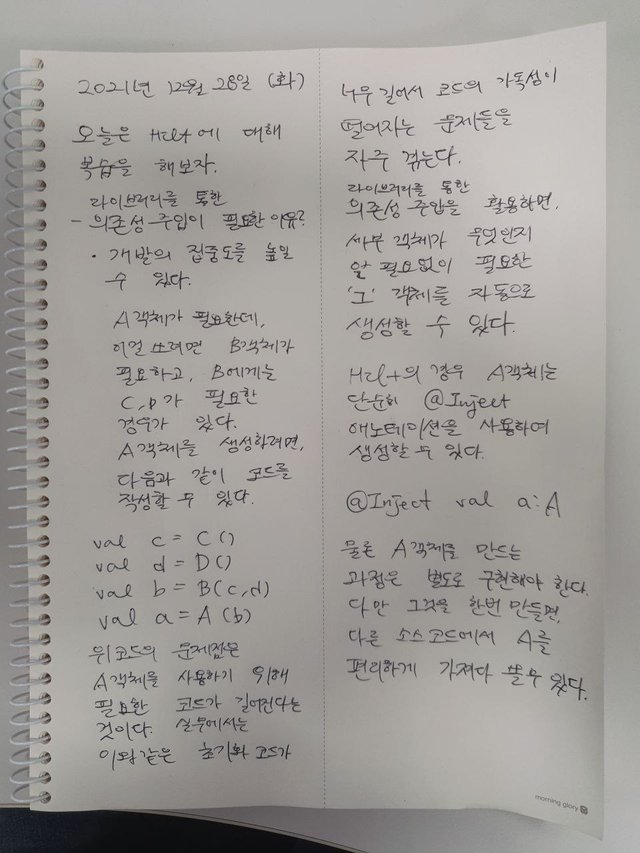 2021년 12월 28일 (화)
오늘은 Hilt에 대해
복습을 해보자.
라이브러리를 통한
- 의존성 주입이 필요한 이유?
• 개발의 집중도를 높일
수 있다.
A객체가 필요한데,
이걸 쓰려면 B객체가
필요하고, B에게는
C, D가 필요한
경우가 있다.
A객체를 생성하려면,
다음과 같이 코드를
작성할 수 있다.
val c = C()
val d = D()
val b = B(c,d)
val a = A(b)
위 코드의 문제점은
A객체를 사용하기 위해
필요한 코드가 길어진다는
것이다. 실무에서는
이와 같은 초기화 코드가
너무 길어서 코드의 가독성이
떨어지는 문제들을
자주 겪는다.
라이브러리를 통한
의존성 주입을 활용하면,
세부 객체가 무엇인지
알 필요없이 필요한
'그' 객체를 자동으로
생성할 수 있다.
Hilt의 경우 A객체는
단순히 @Inject
애노테이션을 사용하여
생성할 수 있다.
@Inject val a: A
물론 A객체를 만드는
과정은 별도로 구현해야 한다.
다만 그것을 한번 만들면,
다른 소스코드에서 A를
편리하게 가져다 쓸 수 있다.
morning glory